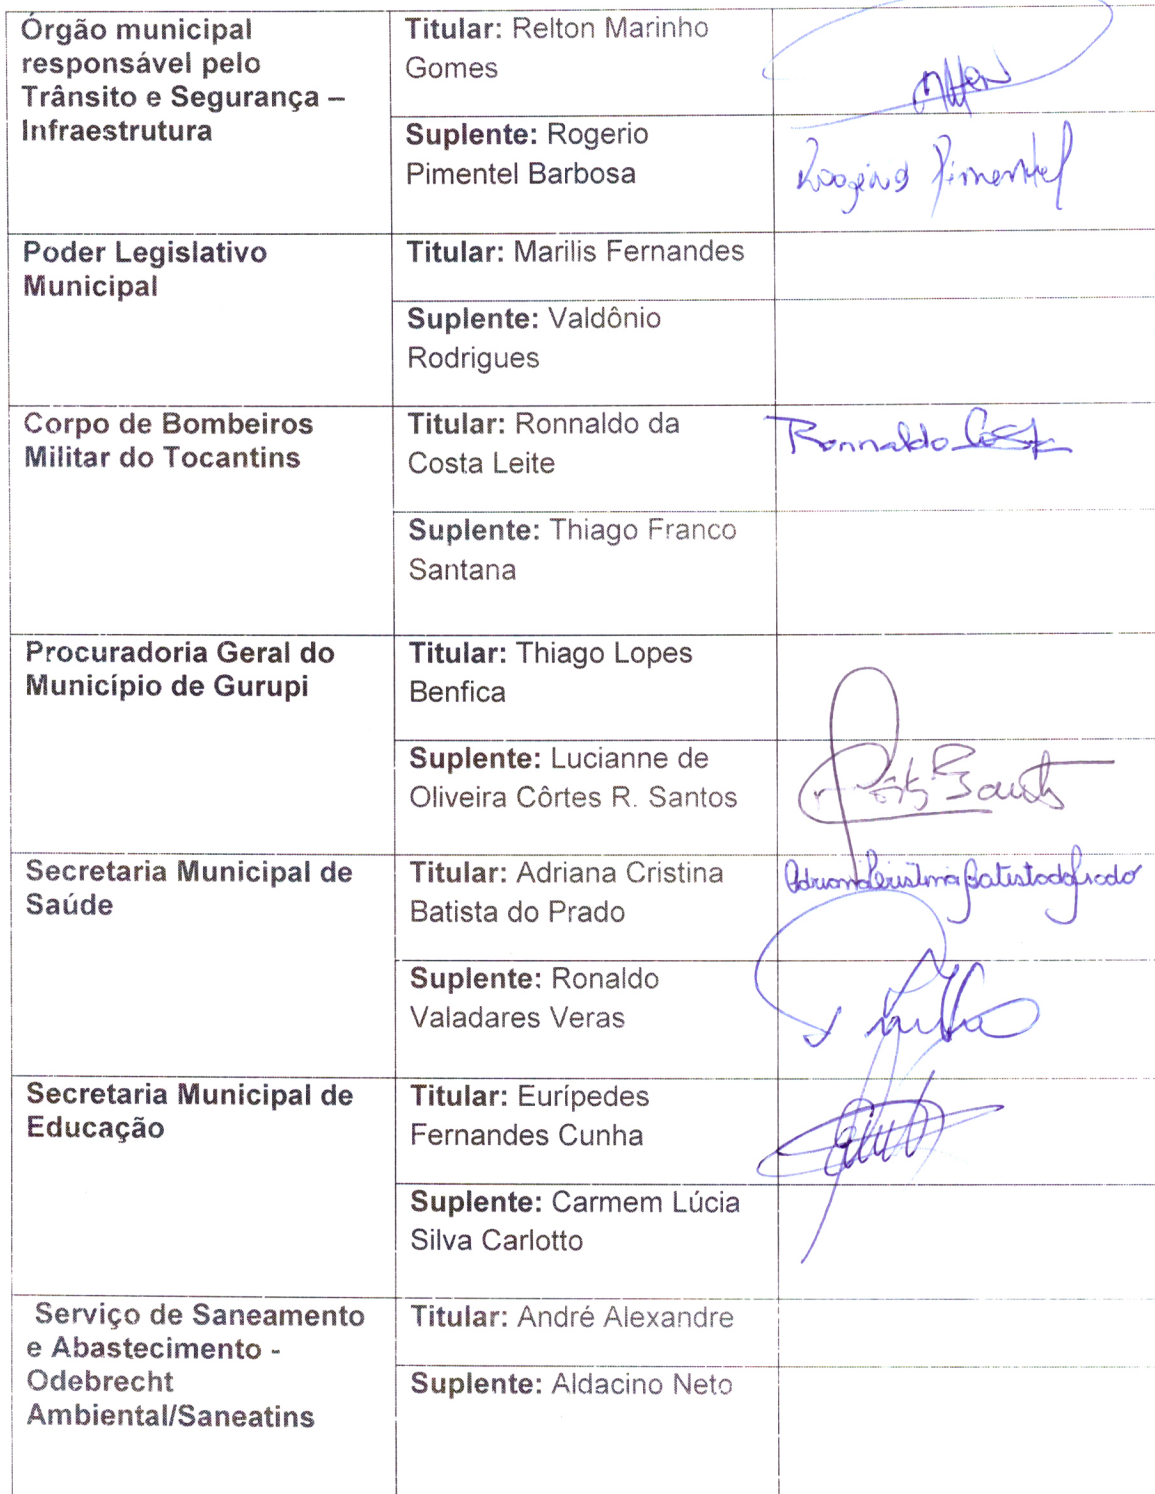 Órgão municipal
responsável pelo
Trânsito e Segurança –
Infraestrutura
Titular: Relton Marinho
Gomes
Suplente: Rogerio
Pimentel Barbosa
Rogério Pimentel
Poder Legislativo
Municipal
Titular: Marilis Fernandes
Suplente: Valdônio
Rodrigues
Corpo de Bombeiros
Militar do Tocantins
Titular: Ronnaldo da
Costa Leite
Ronnaldo Costa
Suplente: Thiago Franco
Santana
Procuradoria Geral do
Município de Gurupi
Titular: Thiago Lopes
Benfica
Suplente: Lucianne de
Oliveira Côrtes R. Santos
Secretaria Municipal de
Saúde
Titular: Adriana Cristina
Batista do Prado
Adriana Cristina Batista do Prado
Suplente: Ronaldo
Valadares Veras
Secretaria Municipal de
Educação
Titular: Eurípedes
Fernandes Cunha
Suplente: Carmem Lúcia
Silva Carlotto
Serviço de Saneamento
e Abastecimento -
Odebrecht
Ambiental/Saneatins
Titular: André Alexandre
Suplente: Aldacino Neto